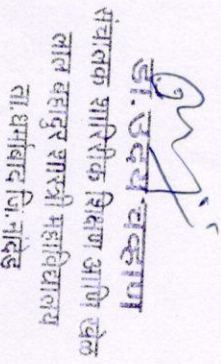 डॉ. उदय चव्हाण
संचालक शारिरीक शिक्षण आणि खेळ
लाल बहादूर शास्त्री महाविद्यालय
ता.धर्माबाद जि.नांदेड